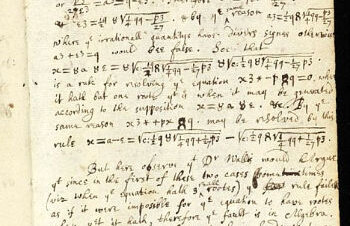 or
e3 = ½q 8 √¼qq − p3/27. & by yᵉ same reason a3 = ½q 8 √¼qq −
where yᵉ irrationall quantitys have divers signes otherwise
a3 + e3 = q would bee false. Soe that
x = 8a 8e = 8√c: ½q 8√¼qq − 1/27 p3 8√c: ½q 8√¼qq − 1/27 p3
is a rule for resolving yᵉ equation x3 * − p 8q = 0. when
it hath but one roote yᵗ is when it may be generated
according to the supposition x = 8a 8e. &c. By yᵉ
same reason x3 * + px 8q. may be resolved by this
rule x = a − e = √c: ½q 8√¼qq + 1/27 p3 − √c: ½q 8√¼qq + 1/27 p3
But here observe yᵗ Dr Wallis would Argue
yᵗ since in the first of these two cases sometimes
(viz when yᵉ equation hath 3 reall roots) yᵉ rule failes
as if it were impossible for yᵉ equation to have roots
when yᵉᵗ it hath, therefore yᵉ fault is in Algebra.